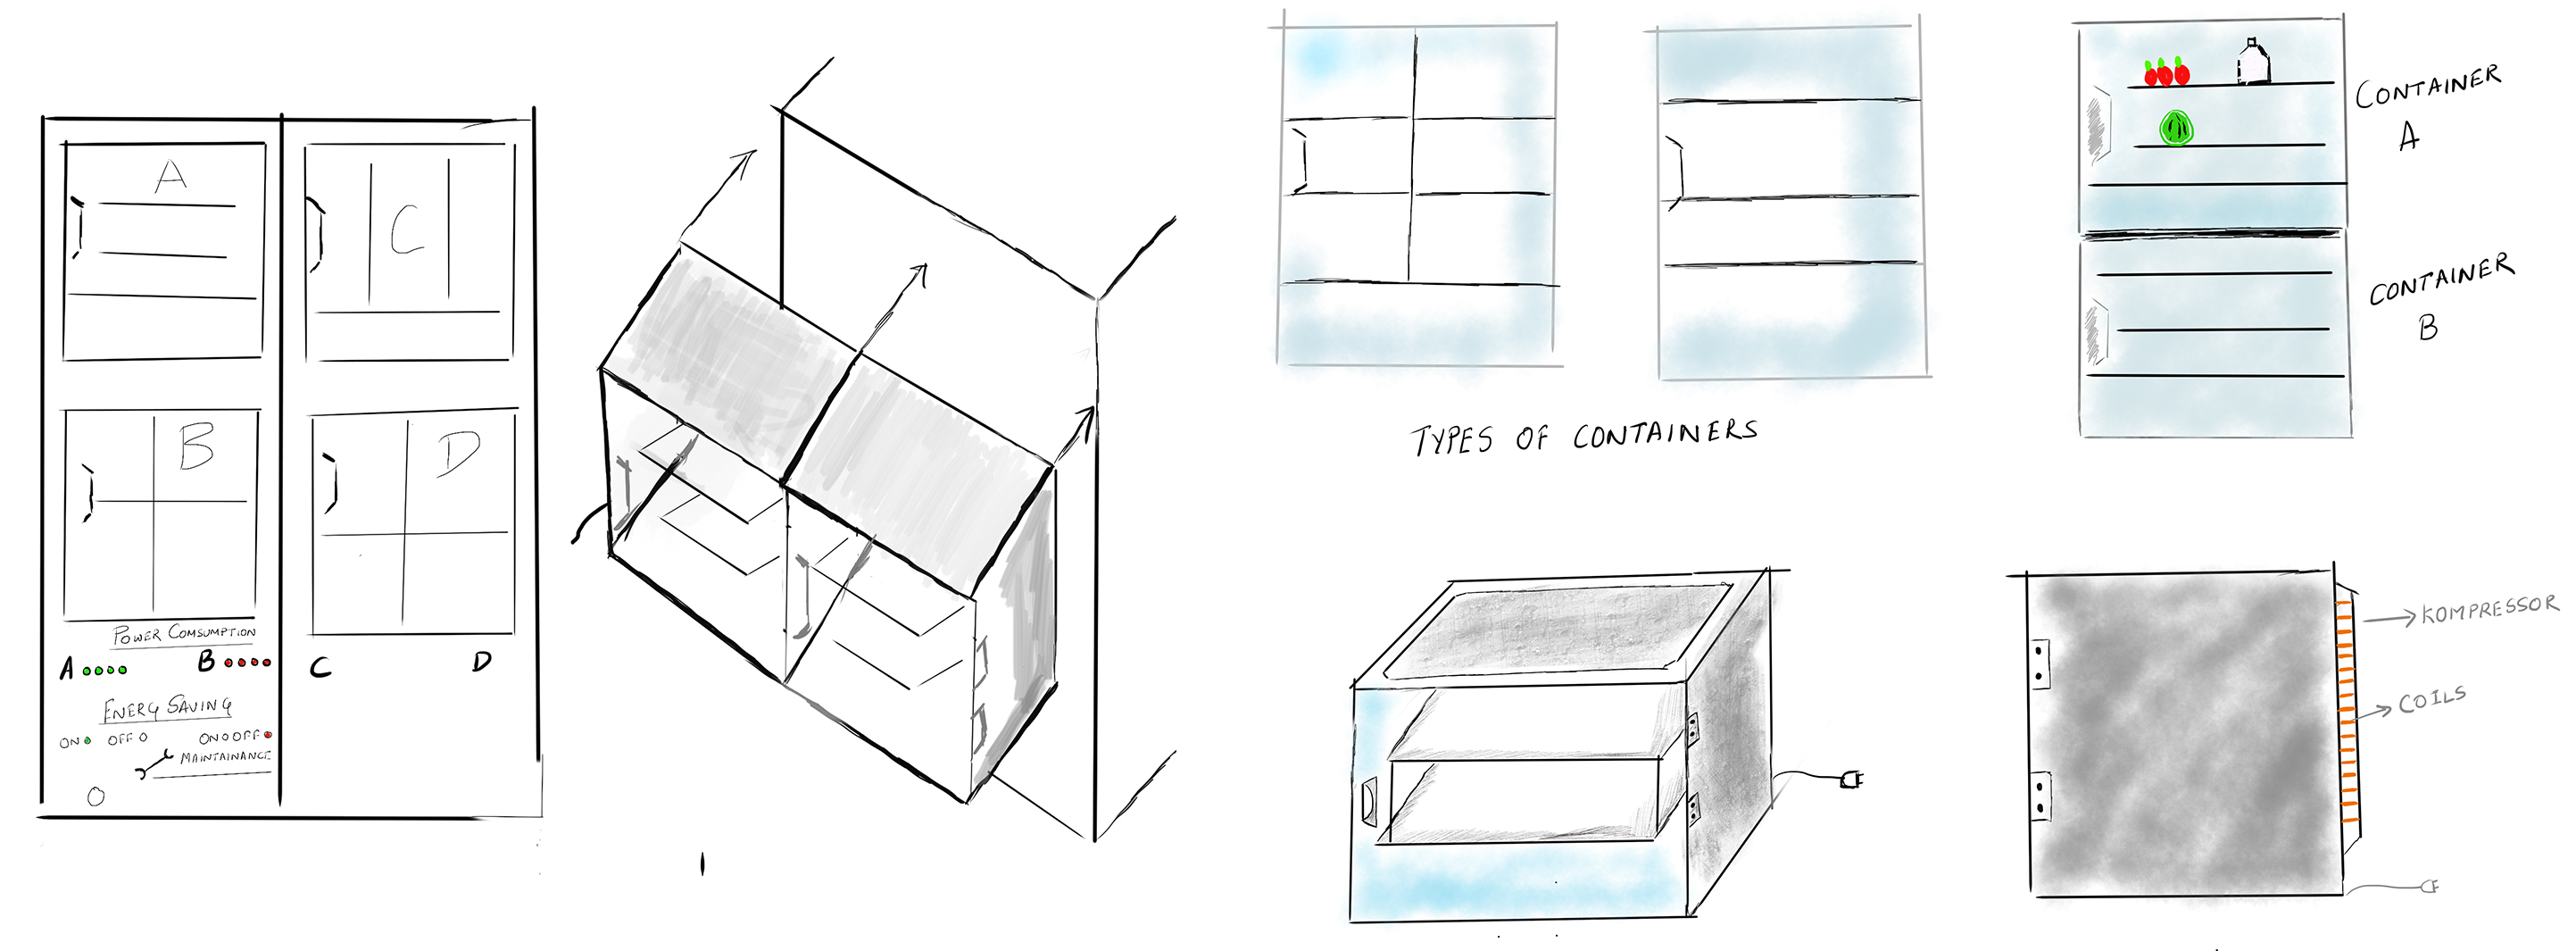 A
C
B
D
POWER COMSUMPTION
A B C D
ENERGY SAVING
ON OFF ON OFF
MAINTAINANCE
TYPES OF CONTAINERS
CONTAINER
A
CONTAINER
B
KOMPRESSOR
COILS